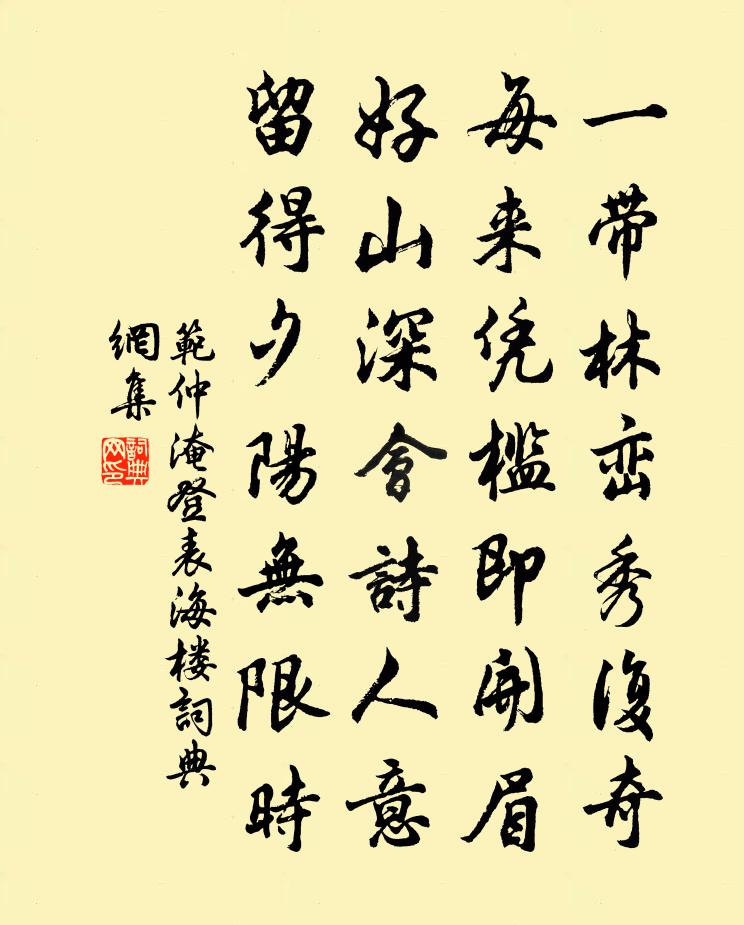 一帶林巒秀復奇
每来凭檻即開眉
好山深會詩人意
留得夕陽無限時
範仲淹登表海楼詞典
網集
詞典
网印